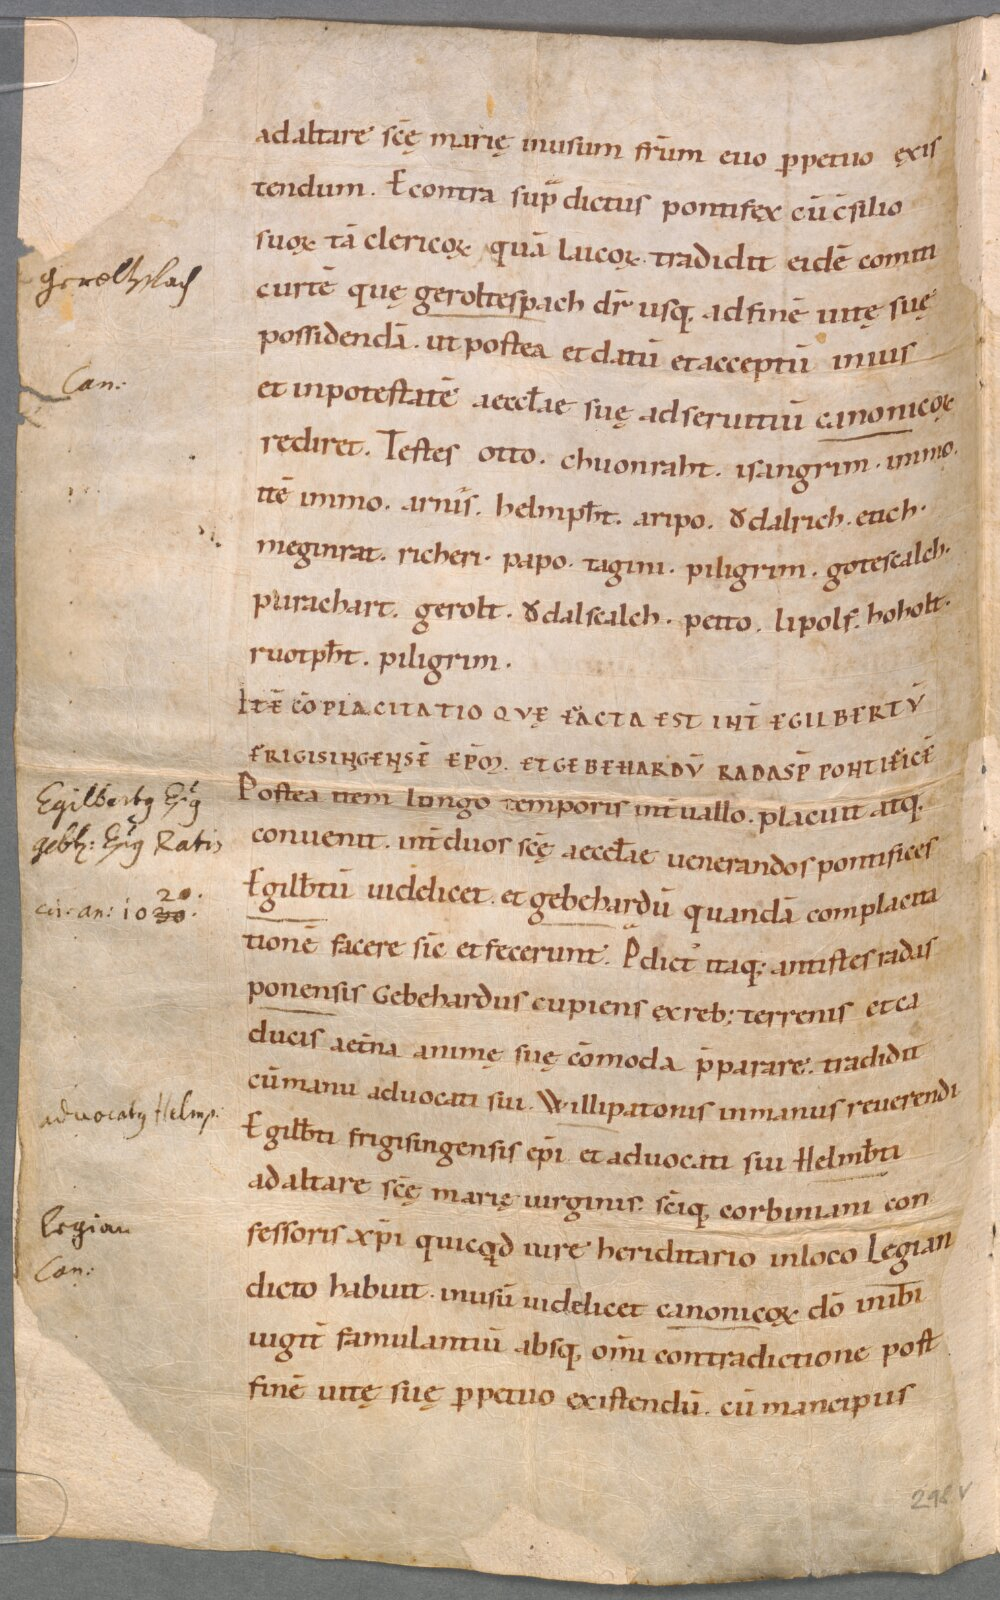 ad altare scę̄ marię inusum frm̄ euo ꝑpetuo exis
tendum. Econtra sup̄dictus pontifex cū c̄silio
suoꝝ tā clericoꝝ quā laicoꝝ. tradidit eidē comiti
Geroltzlach
curtē quę geroltespach dr̄ usq; ad finē uitę suę
possidendā. ut postea et datū et acceptū inius
Can:
et inpotestatē aeccl̄ae suę ad seruitiū canonicoꝝ
rediret. Testes otto. chuonraht. isangrim. immo.
itē immo. arnis. helmpħt. aripo. ꝺ̆dalrich. etich.
meginrat. richeri. papo. tagini. piligrim. gotescalch.
purachart. gerolt. ꝺ̆dalscalch. petto. lipolf. hoholt.
ruotpħt. piligrim.
ITĒ CŌPLACITATIO QVĘ FACTA EST INT̄ EGILBERTV̄
FRIGISINGENSĒ EP̄Ꝫ. ET GEBEHARDV̄ RADASP̄ PONTIFICĒ
Egilbertꝯ
Postea item longo temporis int̄uallo. placuit atq;
gebh: Ratis
conuenit. int̄ duos scę̄ aeccl̄ae uenerandos pontifices
cir: an: 1030: 20.
Egilb̄tū uidelicet. et gebehardū quandā complacita
tionē facere sic et fecerunt. P̄dict᾽ itaq; antistes radas
ponensis Gebehardus cupiens ex reb; terrenis et ca
ducis aet̄na animę suę cōmoda p̄parare. tradidit
cū manu aduocati sui. Willipatonis in manus reuerendi
aduocatꝯ Helmp:
Egilb̄ti frigisingensis ep̄i et aduocati sui Helmb̄ti
ad altare scę̄ marię uirginis. sc̄iq; corbiniani con
Legian
fessoris xp̄i quicq̄d iure hereditario inloco Legian
Can:
dicto habuit. inusū uidelicet canonicoꝝ dō inibi
iugit̄ famulantiū absq; om̄i contradictione post
finē uitę suę ꝑpetuo existendū. cū mancipiis
298 v